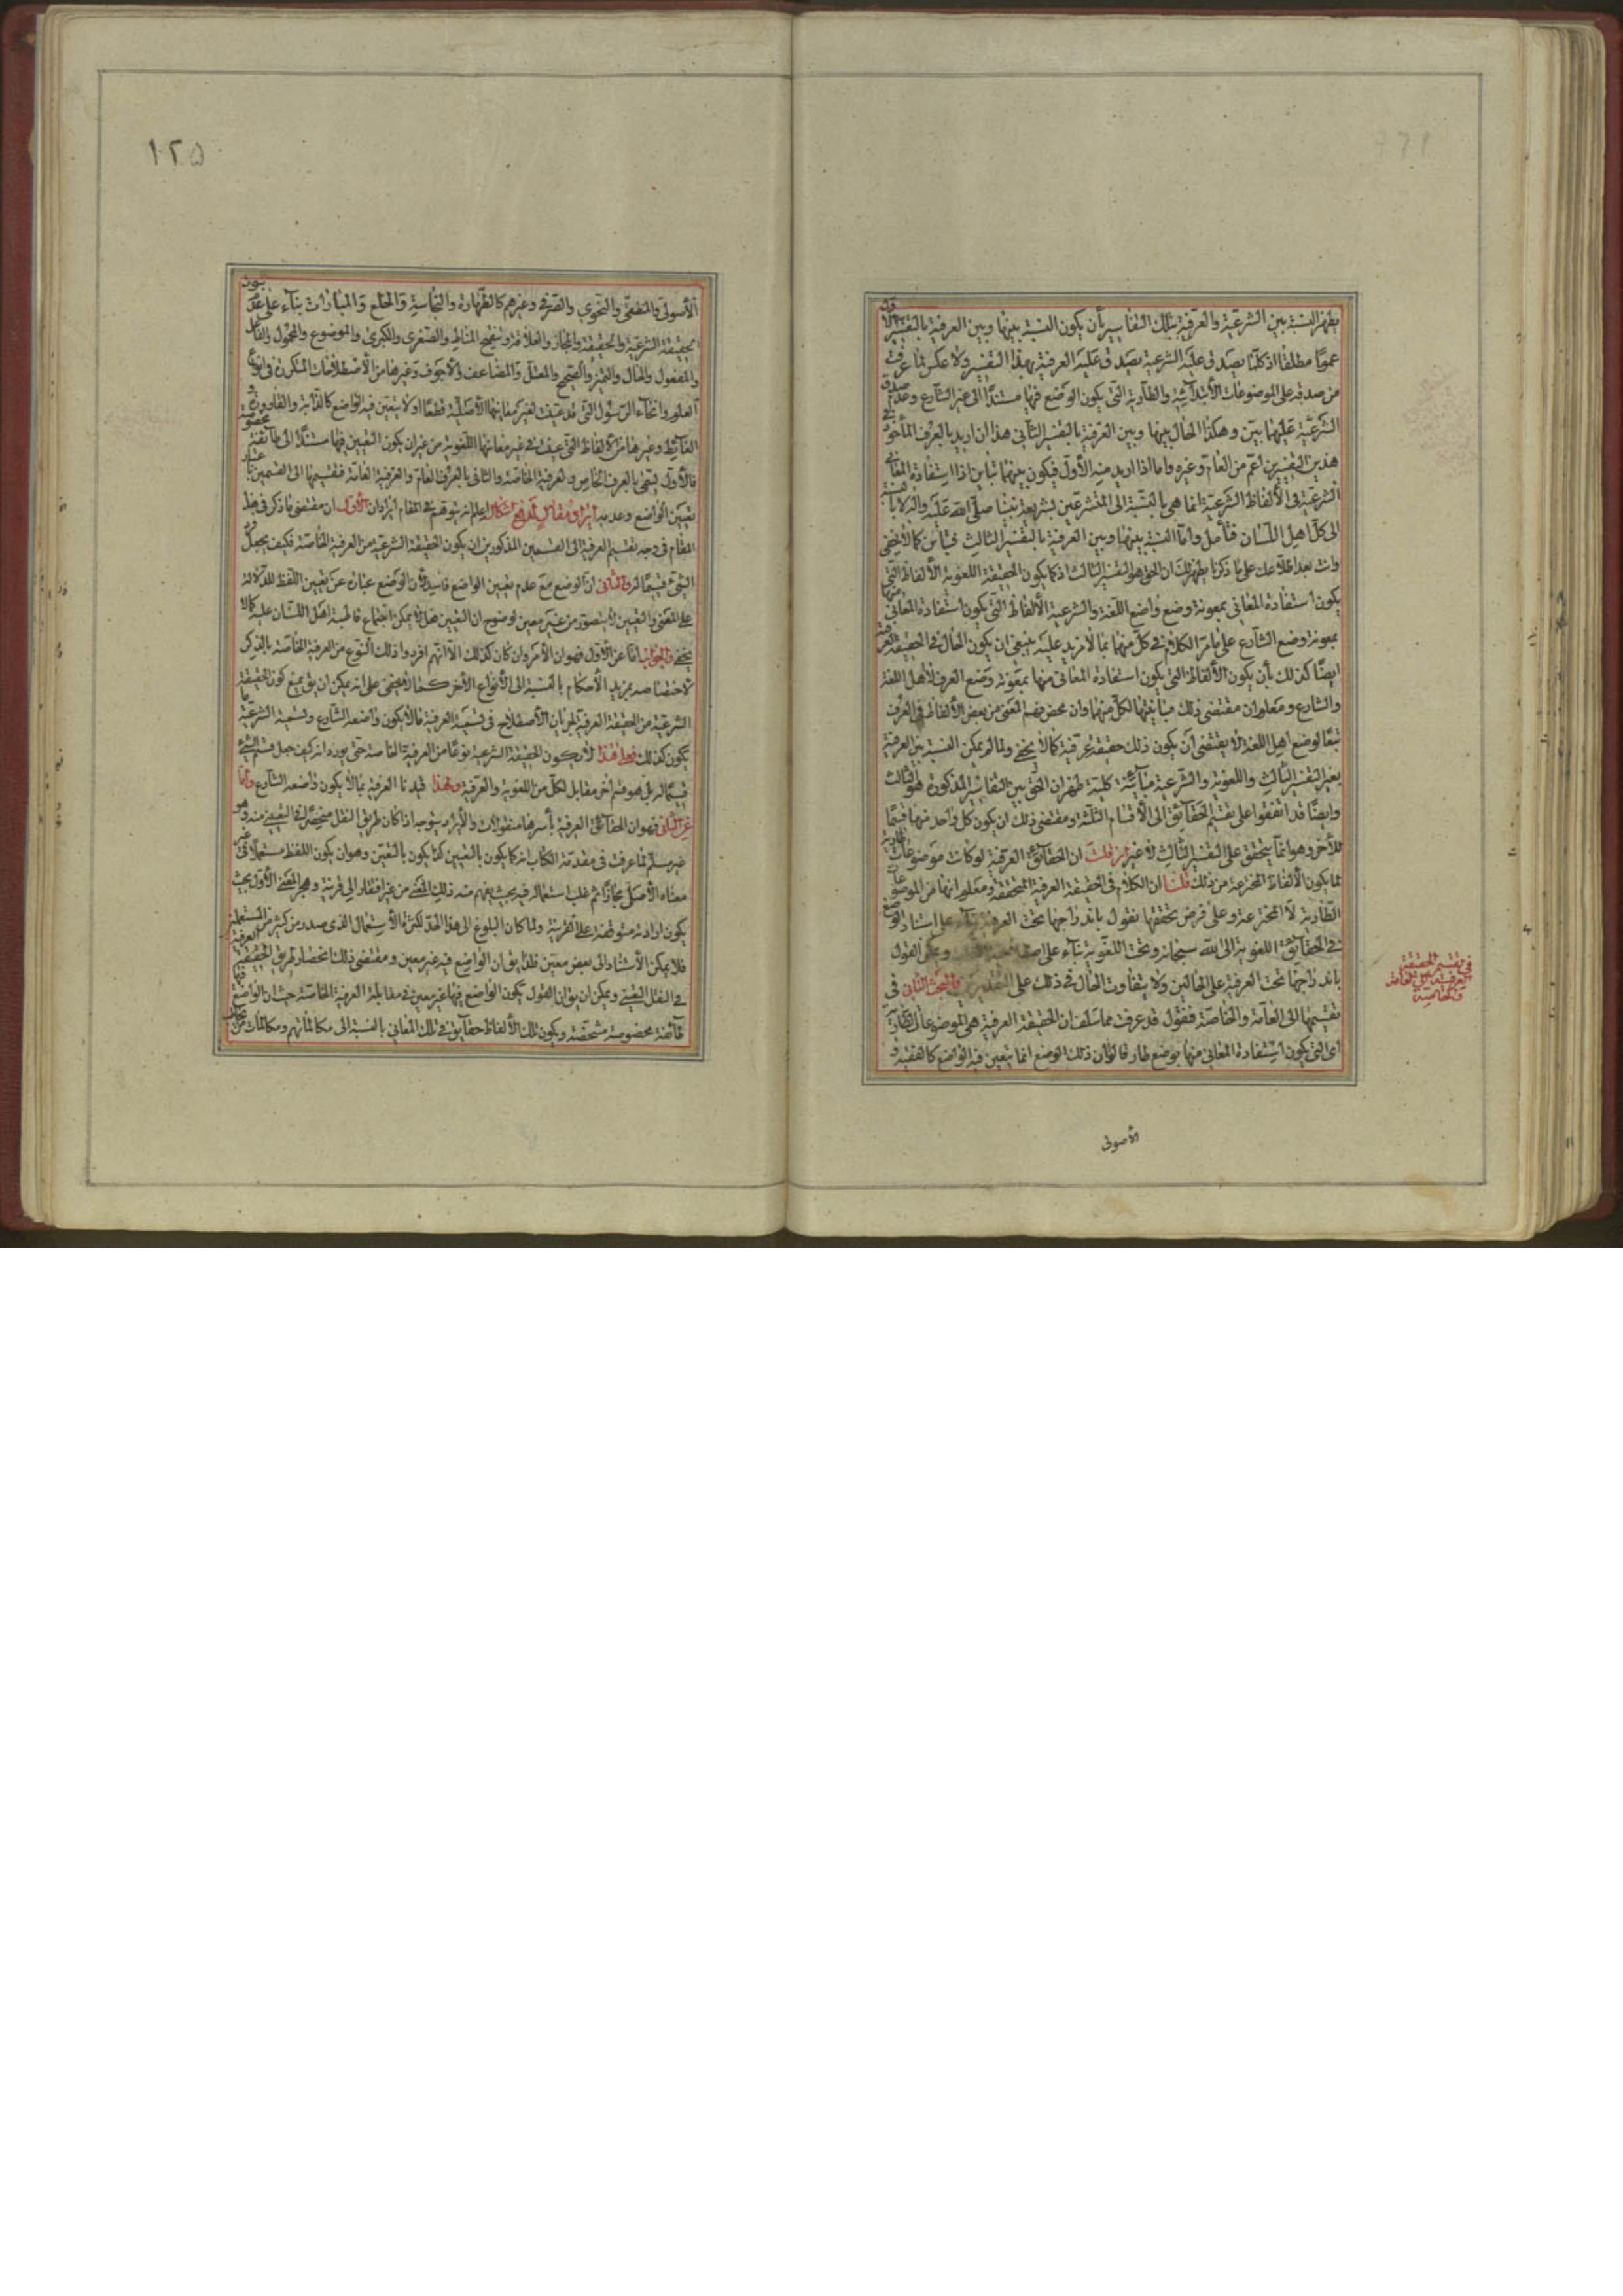 يظهر النسبة بين الشرعية والعرفية بتلك التفاسير بأن يكون النسبة بينها وبين العرفية بالتفسير الأول
عموما مطلقا اذ كلما يصدق عليه الشرعية يصدق عليه العرفية بهذا التفسير ولا عكس لما عرفت
من صدقه على الموضوعات الأبتدائية والطارية التى يكون الوضع فيها مستندا الى غير الشارع وعدم صدق
الشرعية عليهما بين وهكذا الحال بينها وبين العرفية بالتفسير الثانى هذا ان اريد بالعرف المأخوذ فى
هذين التفسيرين اعم من العام وغيره واما اذا اريد منه الأول فيكون بينهما تباين اذ استفادة المعانى
الشرعية فى الألفاظ الشرعية انما هى بالنسبة الى المتشرعين بشريعة نبينا صلى الله عليه واله لا بالنسبة
الى كل اهل اللسان فتأمل واما النسبة بينها وبين العرفية بالتفسير الثالث فتباين كما لا يخفى
وانت بعد اطلاعك على ما ذكرنا يظهر لك ان الحق هو التفسير الثالث اذ كما يكون الحقيقة اللغوية الألفاظ التى
يكون استفادة المعانى منها بمعونة وضع واضع اللغة والشرعية الألفاظ التى يكون استفادة المعانى منها
بمعونة وضع الشارع على ما مر الكلام فى كل منهما بما لا مزيد عليه ينبغى ان يكون الحال فى الحقيقة العرفية
ايضا كذلك بأن يكون الألفاظ التى يكون استفادة المعانى منها بمعونة وضع العرف لا اهل اللغة
والشارع ومعلوم ان مقتضى ذلك مباينتها لكل منهما وان محض فهم المعنى من بعض الألفاظ فى العرف
تبعا لوضع اهل اللغة لا يقتضى ان يكون ذلك حقيقة عرفية كما لا يخفى ولما لم يمكن النسبة بين العرفية
بغير التفسير الثالث واللغوية والشرعية مباينة كلية ظهر ان الحق بين التفاسير المذكورة هو الثالث
وايضا قد اتفقوا على تقسيم الحقائق الى الأقسام الثلثة ومقتضى ذلك ان يكون كل واحد منها قسيما
للأخر وهو انما يتحقق على التفسير الثالث لا غير ان قلت ان الحقائق العرفية لو كانت موضوعات طارية
لما يكون الألفاظ المخترعة من ذلك قلنا ان الكلام فى الحقيقة العرفية المتحققة ومعلوم انها من الموضوعات
الطارية لا المخترعة وعلى فرض تحققها نقول باندراجها تحت العرفية بناء على استناد الوضع
فى الحقائق اللغوية الى الله سبحانه وتحت اللغوية بناء على ويمكن القول
باندراجها تحت العرفية على الحالين ولا يتفاوت الحال فى ذلك على التقديرين المبحث الثانى فى
تقسيمها الى العامة والخاصة فنقول قد عرفت مما سلف ان الحقيقة العرفية هى الموضوعات الطارية
اى التى يكون استفادة المعانى منها بوضع طار فالأن ذلك الوضع اما يتعين فيه الواضع كالفقيه و
الأصولى
فى تقسيم الحقيقة
العرفية الى العامة
والخاصة
١٢٥
الأصولى والمنطقى والنحوى والصرفى وغيرهم كالطهارة والنجاسة والخلع والمباراة بناء على عدم ثبوت
الحقيقة الشرعية والحقيقة والمجاز والعلاقة وتنقيح المناط والصغرى والكبرى والموضوع والمحمول والفاعل
والمفعول والحال والتميز والصحيح والمعتل والمضاعف والأجوف وغيرها من الأصطلاحات المتكررة فى انواع
العلوم وانحاء الرسول التى قد عينت لغير معانيها الأصلية قطعا او لا يتعين فيه الواضع كالدابة والقارورة و
الغائط وغيرها من الألفاظ التى عينت فى غير معانيها اللغوية من غير ان يكون التعيين فيها مستندا الى طائفة مخصوصة
فالأول يسمى بالعرف الخاص والعرفية الخاصة والثانى بالعرف العام والعرفية العامة فتقسيمها الى القسمين باعتبار
تعيين الواضع وعدمه ايراد ومقابل لدفع اشكال اعلم انه يتوهم فى المقام ايرادان الأول ان مقتضى ما ذكر فى هذا
المقام فى وجه تقسيم العرفية الى القسمين المذكورين ان يكون الحقيقة الشرعية من العرفية الخاصة فكيف يجعل
الشىء قسيما له والثانى ان الوضع مع عدم تعيين الواضع فاسد لأن الوضع عبارة عن تعيين اللفظ للدلالة
على المعنى والتعيين لا يتصور من غير معين لوضوح ان التعيين هذا لا يمكن اجتماع قاطبة اهل اللسان عليه كما لا
يخفى والجواب اما عن الأول فهو ان الأمر وان كان كذلك الا انهم افردوا ذلك النوع من العرفية الخاصة بالذكر
لاختصاصه بمزيد الأحكام بالنسبة الى الأنواع الأخر كما لا يخفى على انه يمكن ان يق بمنع كون الحقيقة
الشرعية من الحقيقة العرفية لجريان الأصطلاح فى تسمية العرفية ما لا يكون واضعه الشارع وتسمية الشرعية ما
يكون كذلك فعلى هذا لا يكون الحقيقة الشرعية نوعا من العرفية الخاصة حتى يورد انه كيف جعل قسم الشىء
قسيما له بل هو قسم اخر مقابل لكل من اللغوية والعرفية ولهذا قيدنا العرفية بما لا يكون واضعه الشارع واما
عن الثانى فهو ان الحقائق العرفية بأسرها منقولات والأيراد يتوجه اذا كان طريق النقل منحصرا فى التعيينى منه وهو
غير مسلم لما عرفت فى مقدمة الكتاب انه كما يكون بالتعيين كذا يكون بالتعين وهو ان يكون اللفظ مستعملا فى غير
معناه الأصلى مجازا ثم غلب استعماله فيه بحيث يفهم منه ذلك المعنى من غير افتقار الى قرينة وهجر المعنى الأول بحيث
يكون ارادته متوقفة على القرينة ولما كان البلوغ الى هذا الحد لكثرة الأستعمال الذى صدر من كثير من المستعملين
فلا يمكن الأستناد الى بعض معين فلذا يق ان الواضع فيه غير معين ومقتضى ذلك انحصار طريق الحقيقة العرفية
فى النقل التعينى ويمكن ان يق ان القول بكون الواضع فيها غير معين فى مقابلة العرفية الخاصة حيث ان الواضع فيها
طائفة مخصوصة مشخصة ويكون تلك الألفاظ حقائق فى تلك المعانى بالنسبة الى مكالماتهم ومكالمات من